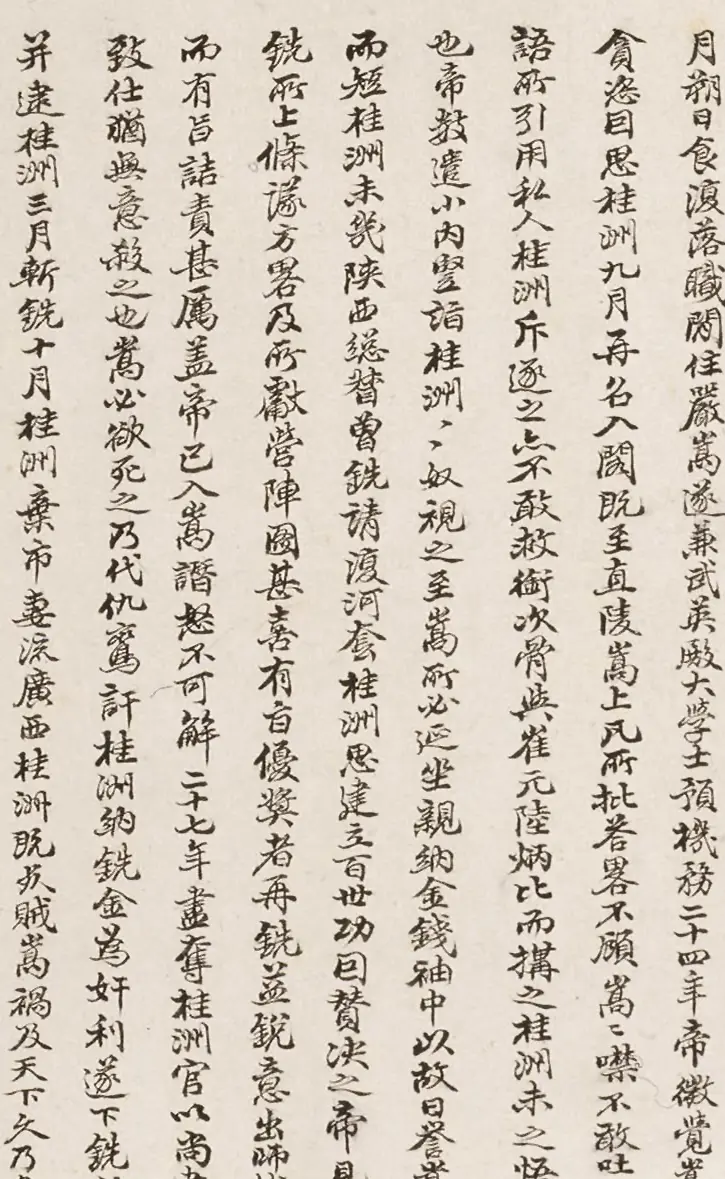 月朔日食復落職閒住嚴嵩遂兼武英殿大學士預機務二十四年帝微覺嵩
貪恣囙思桂洲九月再名入閣既至直陵嵩上凡所批答畧不顧嵩〻噤不敢吐
語所引用私人桂洲斥逐之亦不敢救銜次骨與崔元陸炳比而搆之桂洲未之悟
也帝数遣小内豎詣桂洲〻奴視之至嵩所必延坐親納金錢袖中以故日譽嵩
而短桂洲未幾陝西総督曾銑請復河套桂洲思建立百世功囙賛决之帝見
銑所上條議方畧及所獻營陣圖甚喜有旨優奬者再銑益銳意出師
而有旨詰責甚厲盖帝已入嵩譖怒不可解二十七年盡奪桂洲官以尚
致仕猶無意殺之也嵩必欲死之乃代仇鸞訐桂洲納銑金為奸利遂下銑
并逮桂洲三月斬銑十月桂洲棄市妻流廣西桂洲既死賊嵩禍及天下久乃